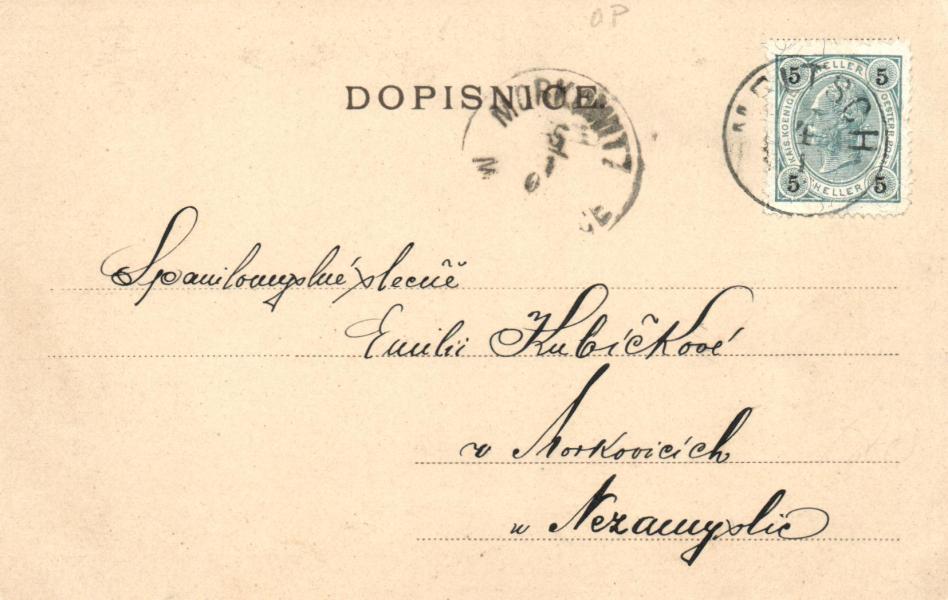 OP
DOPISNICE.
MORKOWITZ
5
HELLER
5
5
KAIS. KOENIGL.
OESTERR. POST
5
HELLER
5
Spanilomyslné slečně
Emilii Kubíčkové
v Morkovicích
u Nezamyslic